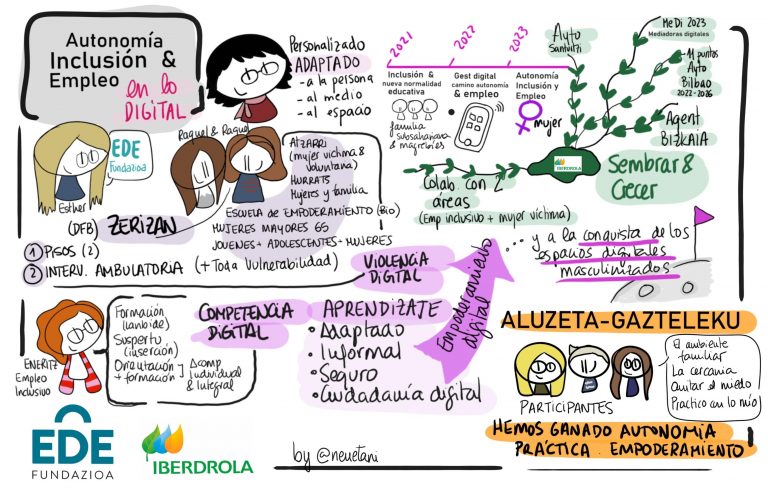 Autonomía
Inclusión &
Empleo
en lo
DIGITAL
Personalizado
ADAPTADO
- a la persona
- al medio
- al espacio
2021
2022
2023
Inclusión &
nueva normalidad
educativa
familia
subsahariana
& magrebíes
Gest digital
camino autonomía
& empleo
Autonomía
Inclusión y
Empleo
mujer
Ayto
Santurtzi
MeDi 2023
Mediadoras digitales
11 puntos
Ayto
Bilbao
2022-2026
Agent
BIZKAIA
IBERDROLA
Sembrar &
Crecer
Colab. con 2
áreas
(Emp inclusivo + mujer víctima)
EDE
Fundazioa
Esther
(DFB)
ZERIZAN
Raquel & Raquel
AIZARRI
(mujer víctima &
voluntaria)
HURRATS
Mujeres y familia
ESCUELA DE EMPODERAMIENTO (Bio)
MUJERES MAYORES 65
JOVENES + ADOLESCENTES + MUJERES
1 PISOS (2)
2 INTERV. AMBULATORIA (+ Toda Vulnerabilidad)
VIOLENCIA
DIGITAL
... y a la conquista de los
espacios digitales
masculinizados
Empoderamiento
digital
ENERITZ
Empleo
Inclusivo
Formación
(Lanbide)
Suspertu
(inserción)
Orientación
+ formación
Acomp
Individual &
Integral
COMPETENCIA
DIGITAL
APRENDIZATE
• Adaptado
• Informal
• Seguro
• Ciudadanía digital
ALUZETA-GAZTELEKU
PARTICIPANTES
El ambiente
familiar
La cercanía
Quitar el miedo
Practico con lo mío
HEMOS GANADO AUTONOMÍA
PRÁCTICA. EMPODERAMIENTO
EDE
FUNDAZIOA
IBERDROLA
by @neuetani